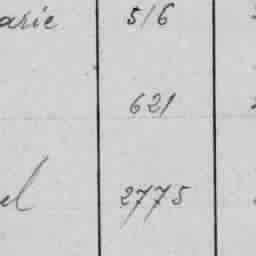 arie 516
621
el 2775